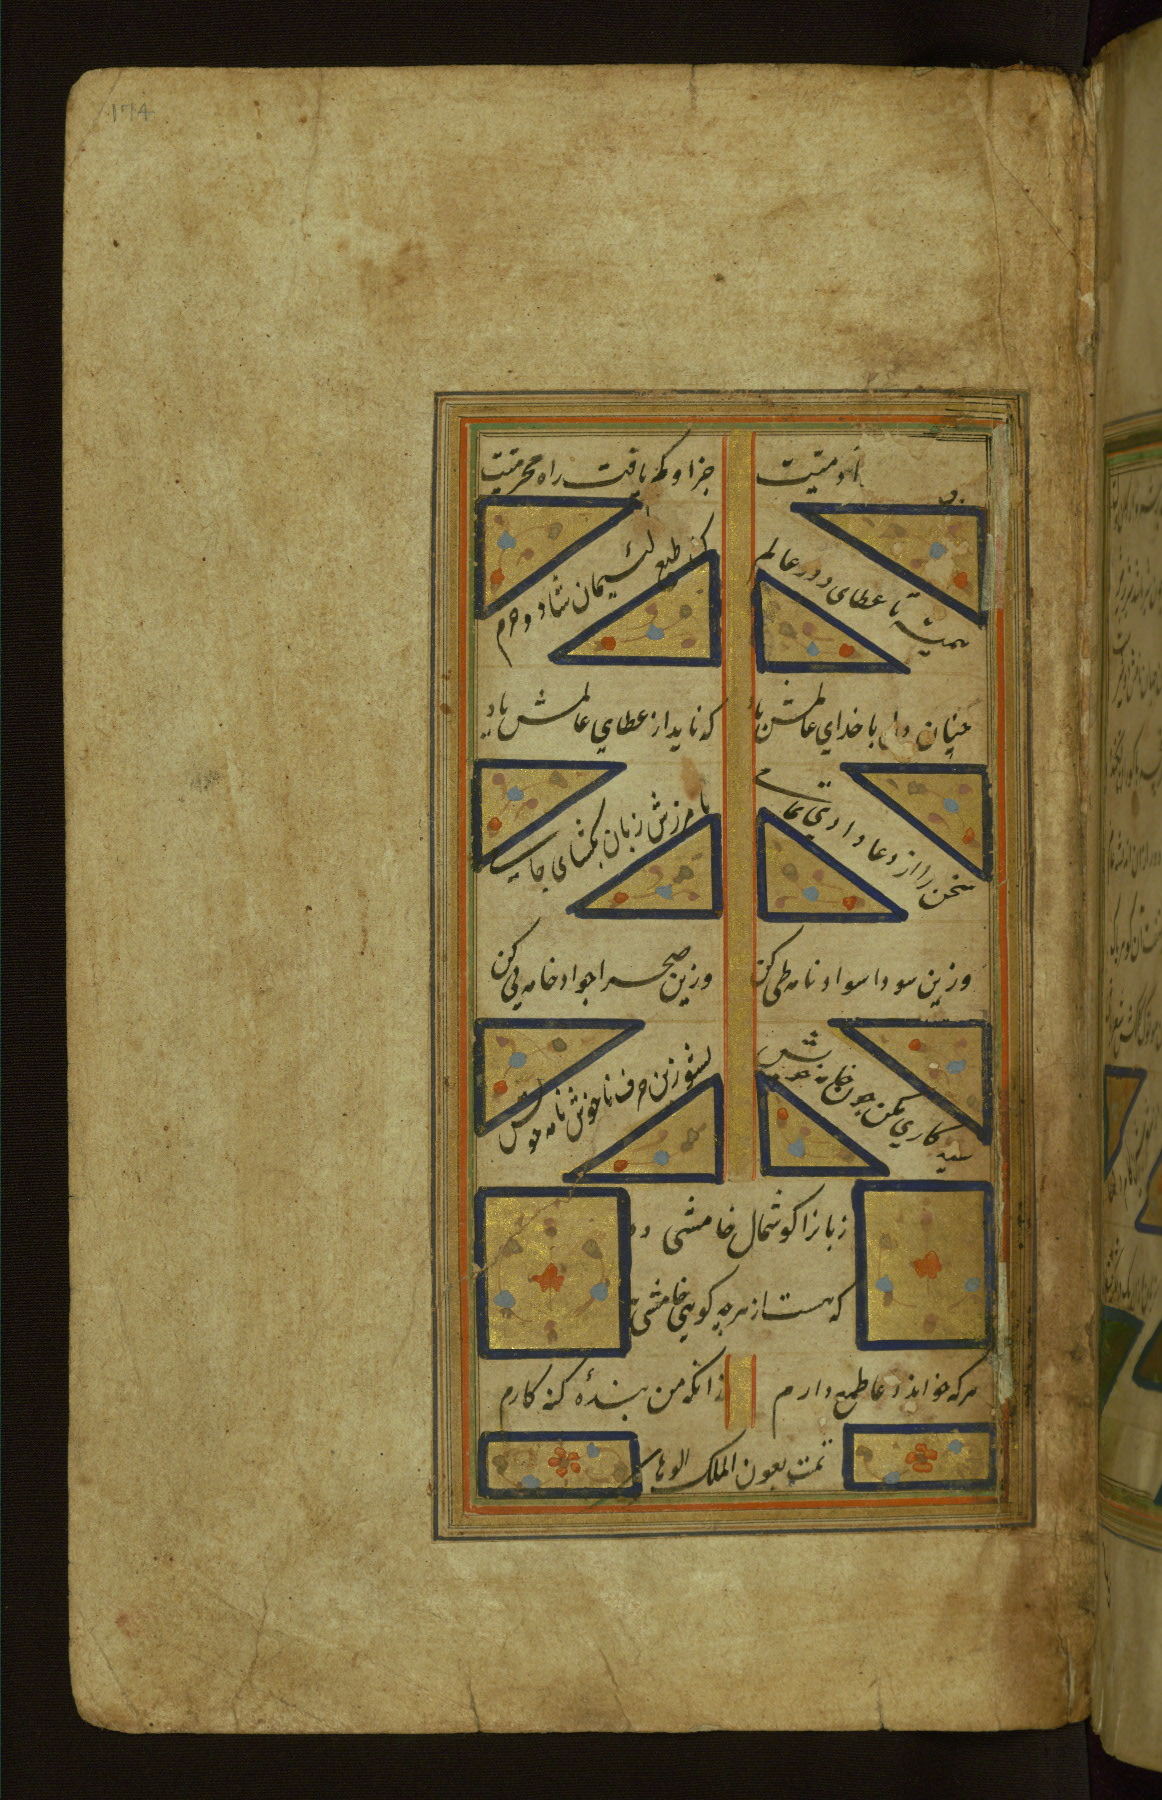 ۱۷۴
آدمیت
جز او که یافت راه محرمیت
همیشه تا عطای دور عالم
کند طبع لئیمان شاد و خرم
چنان دل با خدای عالمش باد
که ناید از عطای عالمش یاد
سخن را از دعا دادی تمامی
بآمرزش زبان بگشای جامی
وزین سودا سواد نامه طی کن
وزین صحرا جواد خامه پی کن
سیه کاری مکن چون خامه خویش
بشو زین حرف ناخوش نامه خویش
زبانرا گوشمال خامشی ده
که هست از هرچه گویی خامشی به
هرکه خواند دعا طمع دارم
زانکه من بندهٔ گنه کارم
تمت بعون الملک الوهاب